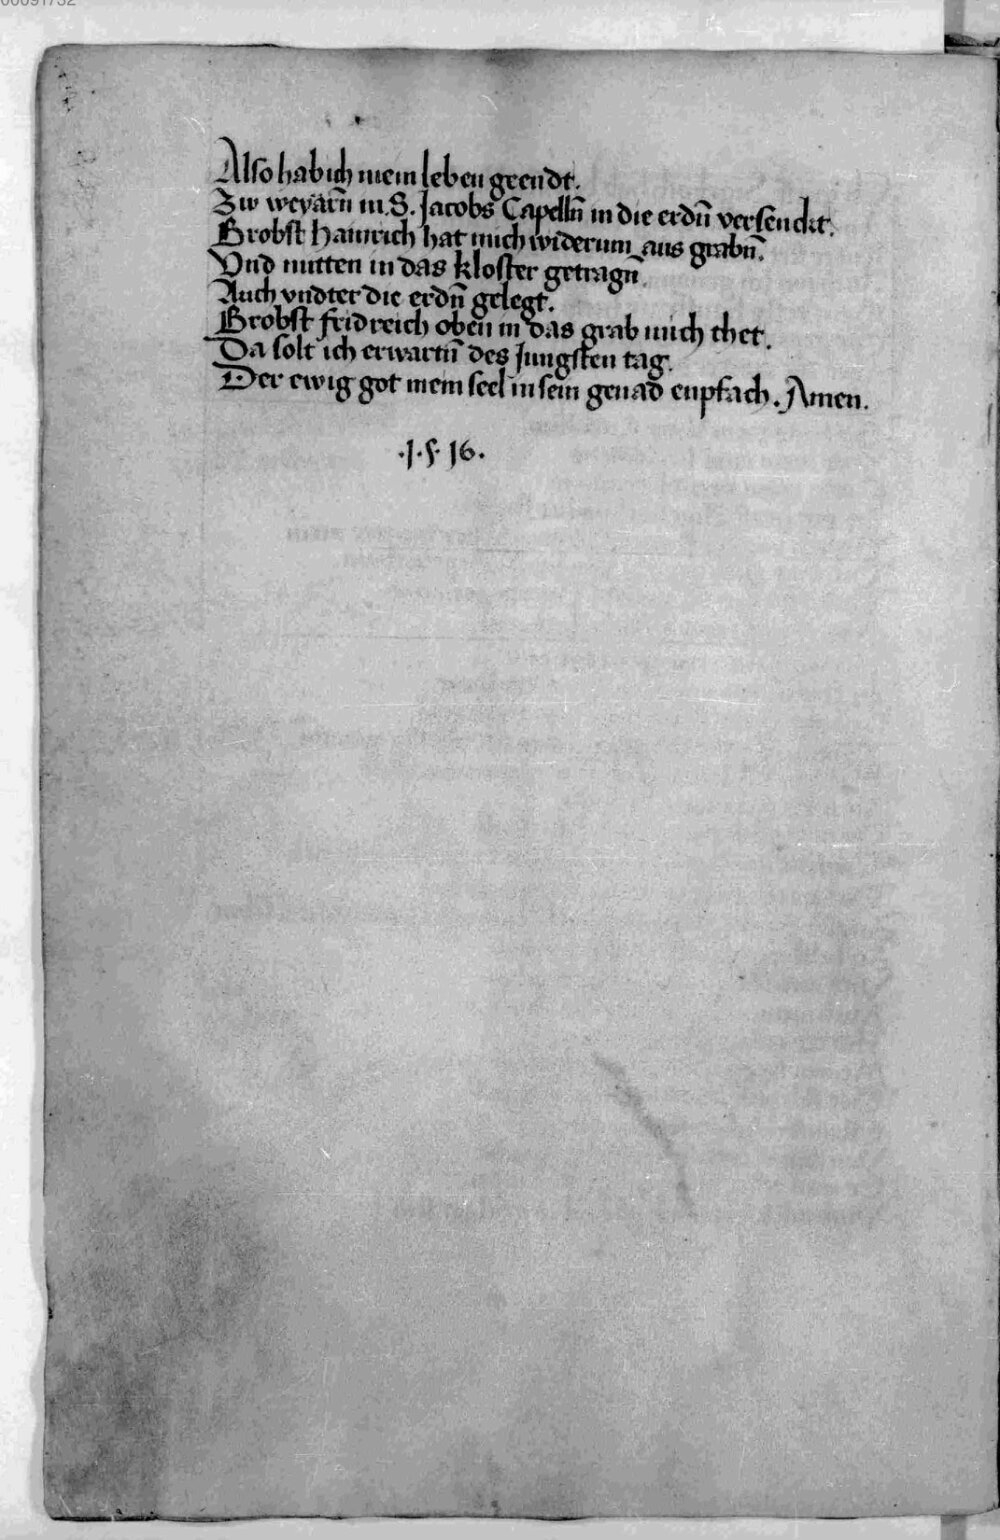 Also hab ich mein leben geendt.
Zw weyarn̄ in .S. Jacobs Capelln̄ in die erdn̄ versenckt.
Brobst Hainrich hat mich widerum aus grabn̄.
Vnd mitten in das kloster getragn̄.
Auch vndter die erdn̄ gelegt.
Brobst fridreich oben in das grab mich thet.
Da solt ich erwartn̄ des Jungsten tag.
Der ewig got mein seel in sein genad enpfach. Amen.
.1.5.16.